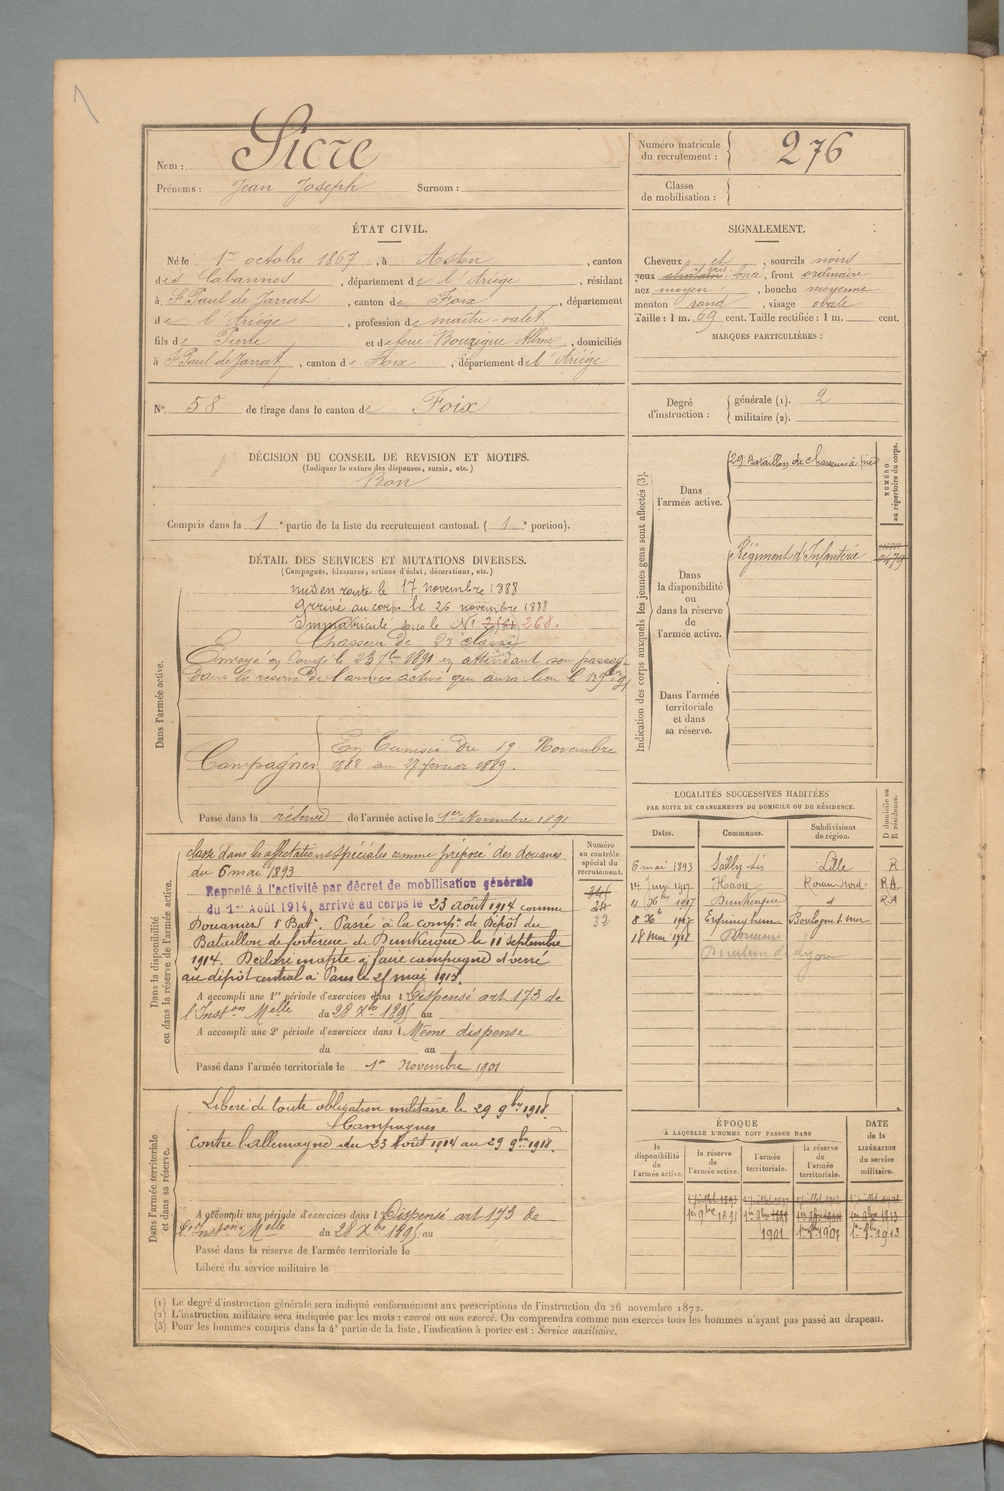 Nom : Sicre
Prénoms : Jean Joseph Surnom :
Numéro matricule du recrutement : 276
Classe de mobilisation :
ÉTAT CIVIL.
Né le 1er octobre 1867, à Aston, canton
des Cabannes, département de l'Ariège, résidant
à St Paul de Jarrat, canton de Foix, département
de l'Ariège, profession de maître-valet
fils de Pierre et de feue Bouzigue, domiciliés
à St Paul de Jarrat, canton de Foix, département de l'Ariège
SIGNALEMENT.
Cheveux et, sourcils noirs
yeux foncé, front ordinaire
nez moyen, bouche moyenne
menton rond, visage ovale
Taille : 1 m. 69 cent. Taille rectifiée : 1 m. cent.
MARQUES PARTICULIÈRES :
N° 58 de tirage dans le canton de Foix
Degré d'instruction : générale (1). 2
militaire (2).
DÉCISION DU CONSEIL DE REVISION ET MOTIFS.
(Indiquer la nature des dispenses, sursis, etc.)
Bon
Compris dans la 1e partie de la liste du recrutement cantonal. (1e portion).
DÉTAIL DES SERVICES ET MUTATIONS DIVERSES.
(Campagnes, blessures, actions d'éclat, décorations, etc.)
Dans l'armée active.
mis en route le 17 novembre 1888
arrivé au corps le 26 novembre 1888
Immatriculé sous le N° 268.
Chasseur de 2e classe
Envoyé en congé le 23 7bre 1891 en attendant son passage
dans la réserve de l'armée active qui aura lieu le 1er 9bre 91
Campagnes
En Tunisie du 19 Novembre
1888 au 27 février 1889.
Passé dans la réserve de l'armée active le 1er Novembre 1891
Indication des corps auxquels les jeunes gens sont affectés (3).
NUMÉRO au répertoire du corps.
Dans l'armée active.
29e Bataillon de chasseurs à pied
Dans la disponibilité ou dans la réserve de l'armée active.
Régiment d'Infanterie
Dans l'armée territoriale et dans sa réserve.
Dans la disponibilité ou dans la réserve de l'armée active.
Numéro au contrôle spécial du recrutement.
32
classé dans les affectations spéciales comme préposé des douanes
du 6 mai 1893
Rappelé à l'activité par décret de mobilisation générale
du 1er Août 1914, arrivé au corps le 23 août 1914 comme
Douanier 1er Batn. Passé à la compie de Dépôt du
Bataillon de forteresse de Dunkerque le 11 septembre
1914. Déclaré inapte à faire campagne et versé
au dépôt central à Paris le 25 mai 1915.
A accompli une 1re période d'exercices dans l Dispensé art 173 de
l'Inston Melle du 28 Xbre 1895 au
A accompli une 2e période d'exercices dans l Même dispense
du au
Passé dans l'armée territoriale le 1er Novembre 1901
LOCALITÉS SUCCESSIVES HABITÉES
PAR SUITE DE CHANGEMENTS DE DOMICILE OU DE RÉSIDENCE.
Dates. Communes. Subdivisions de région. D domicile ou R résidence.
6 mai 1893 Sailly Lille R
Rouen-Nord RA
Dunkerque RA
Erquinghem Boulogne s. mer
18 mai 1918 Douanes
Direction de Lyon
Dans l'armée territoriale et dans sa réserve.
Libéré de toute obligation militaire le 29 9bre 1918.
Campagnes
contre l'allemagne du 23 Août 1914 au 29 9bre 1918.
A accompli une période d'exercices dans l Dispensé art 173 de
l'Inston Melle du 28 Xbre 1895 au
Passé dans la réserve de l'armée territoriale le
Libéré du service militaire le
ÉPOQUE
À LAQUELLE L'HOMME DOIT PASSER DANS
la disponibilité de l'armée active. la réserve de l'armée active. l'armée territoriale. la réserve de l'armée territoriale.
DATE de la LIBÉRATION du service militaire.
1er 9bre 1891
1901 1907 1913
(1) Le degré d'instruction générale sera indiqué conformément aux prescriptions de l'instruction du 26 novembre 1872.
(2) L'instruction militaire sera indiquée par les mots : exercé ou non exercé. On comprendra comme non exercés tous les hommes n'ayant pas passé au drapeau.
(3) Pour les hommes compris dans la 4e partie de la liste, l'indication à porter est : Service auxiliaire.